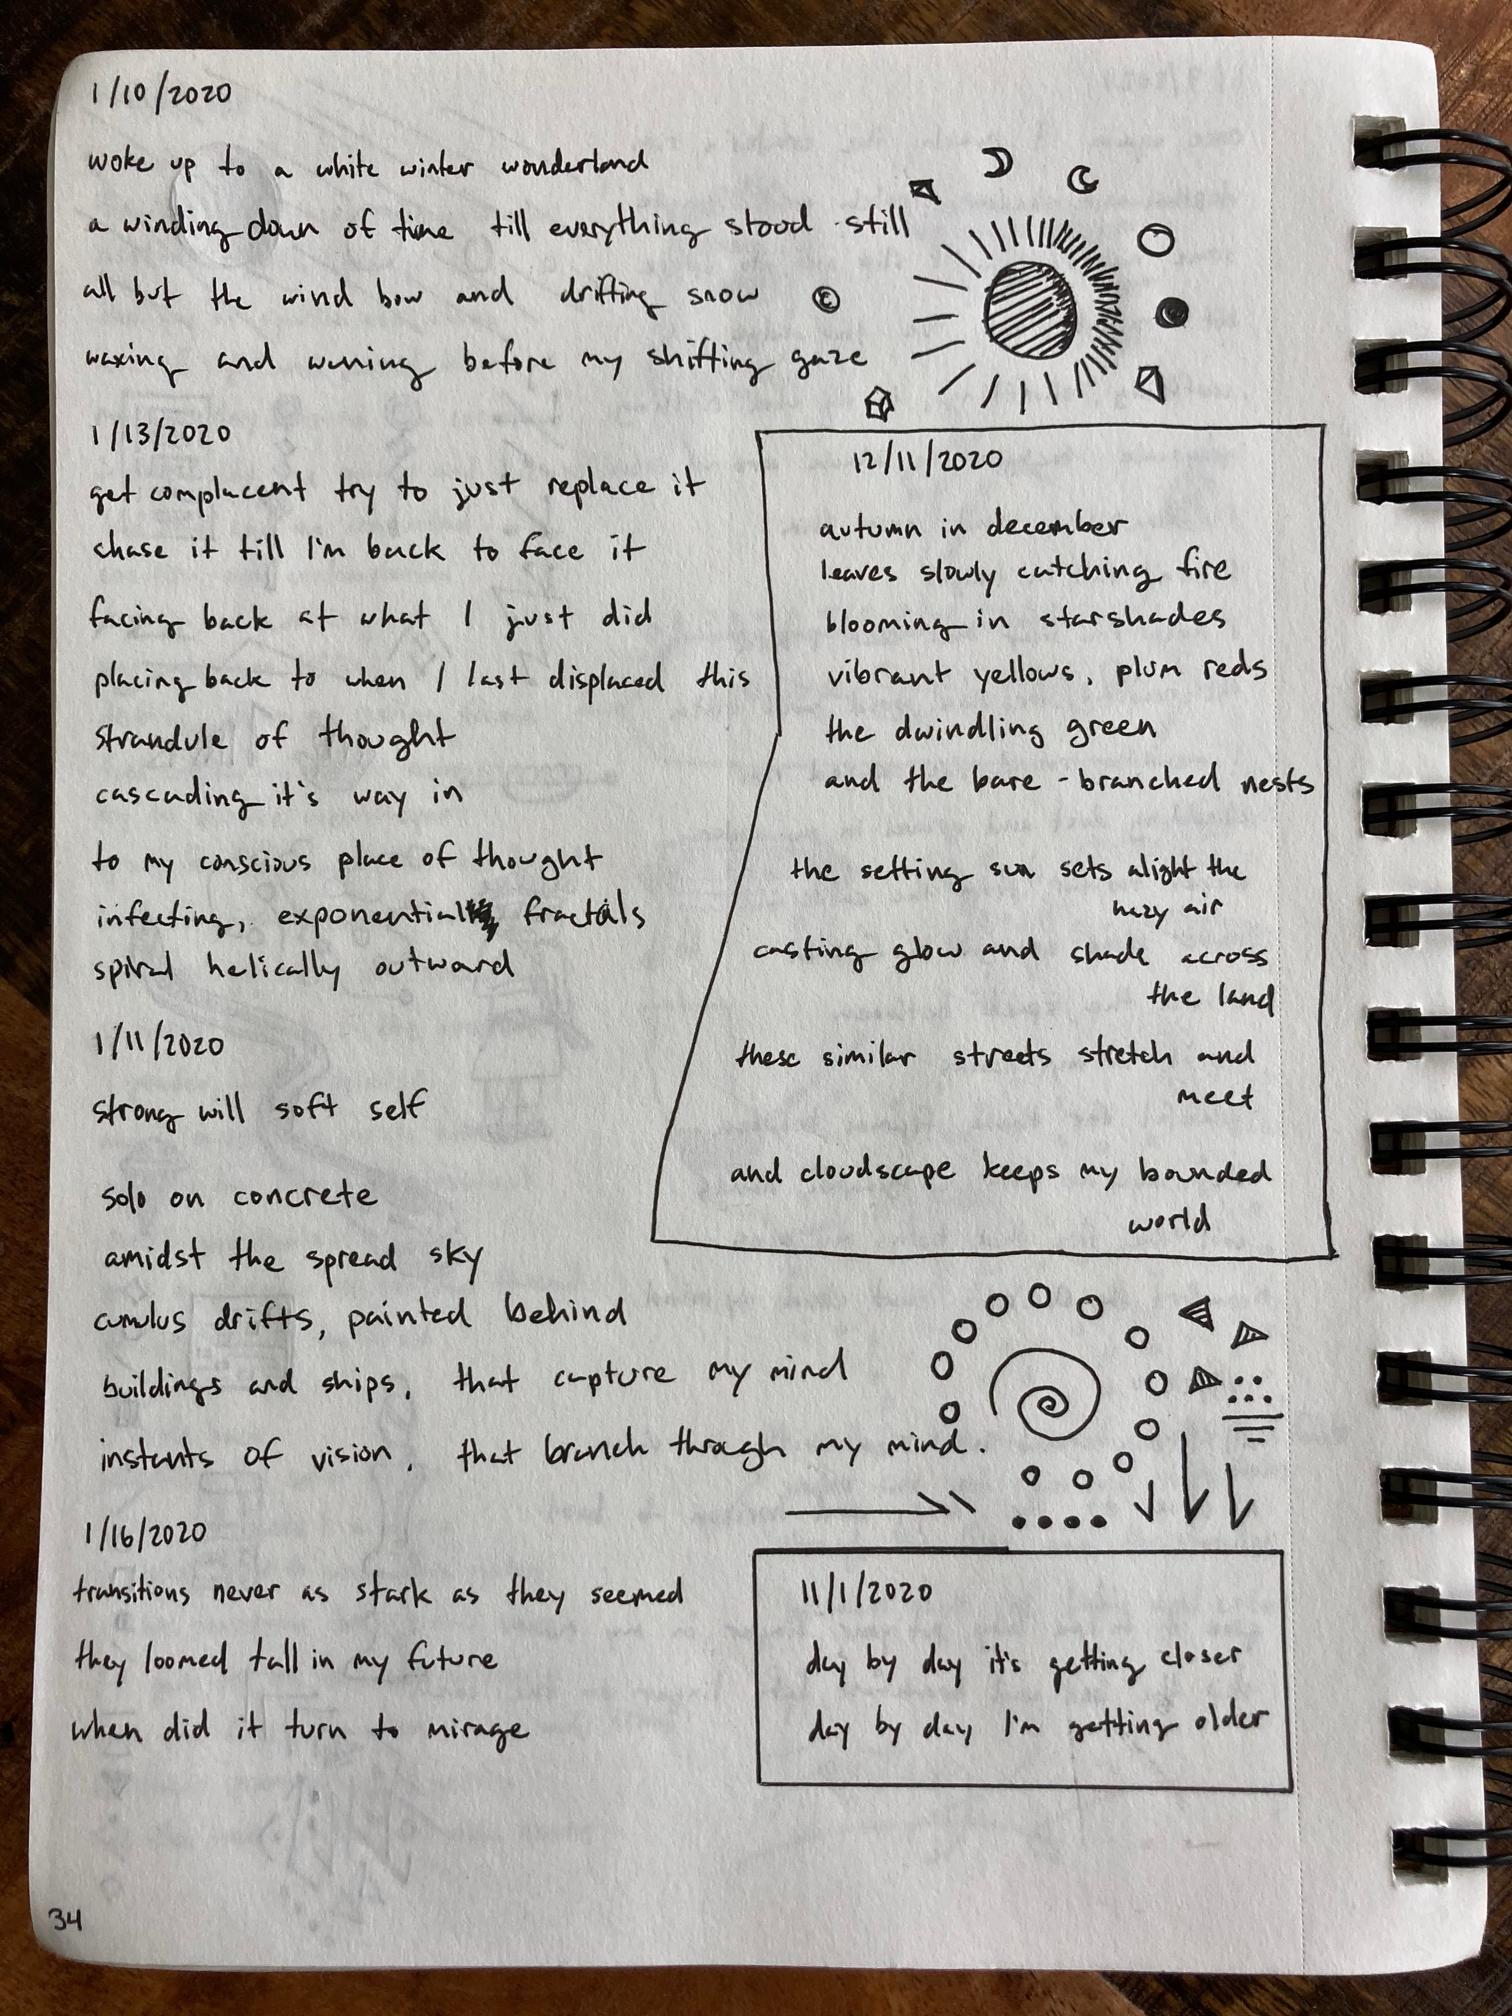 1/10/2020
woke up to a white winter wonderland
a winding down of time till everything stood still
all but the wind bow and drifting snow
waxing and waning before my shifting gaze
1/13/2020
get complacent try to just replace it
chase it till I'm back to face it
facing back at what I just did
placing back to when I last displaced this
strandule of thought
cascading it's way in
to my conscious place of thought
infecting, exponential fractals
spiral helically outward
1/11/2020
strong will soft self
solo on concrete
amidst the spread sky
cumulus drifts, painted behind
buildings and ships, that capture my mind
instants of vision, that branch through my mind.
1/16/2020
transitions never as stark as they seemed
they loomed tall in my future
when did it turn to mirage
12/11/2020
autumn in december
leaves slowly catching fire
blooming in starshades
vibrant yellows, plum reds
the dwindling green
and the bare-branched nests
the setting sun sets alight the
hazy air
casting glow and shade across
the land
these similar streets stretch and
meet
and cloudscape keeps my bounded
world
11/1/2020
day by day it's getting closer
day by day I'm getting older
34